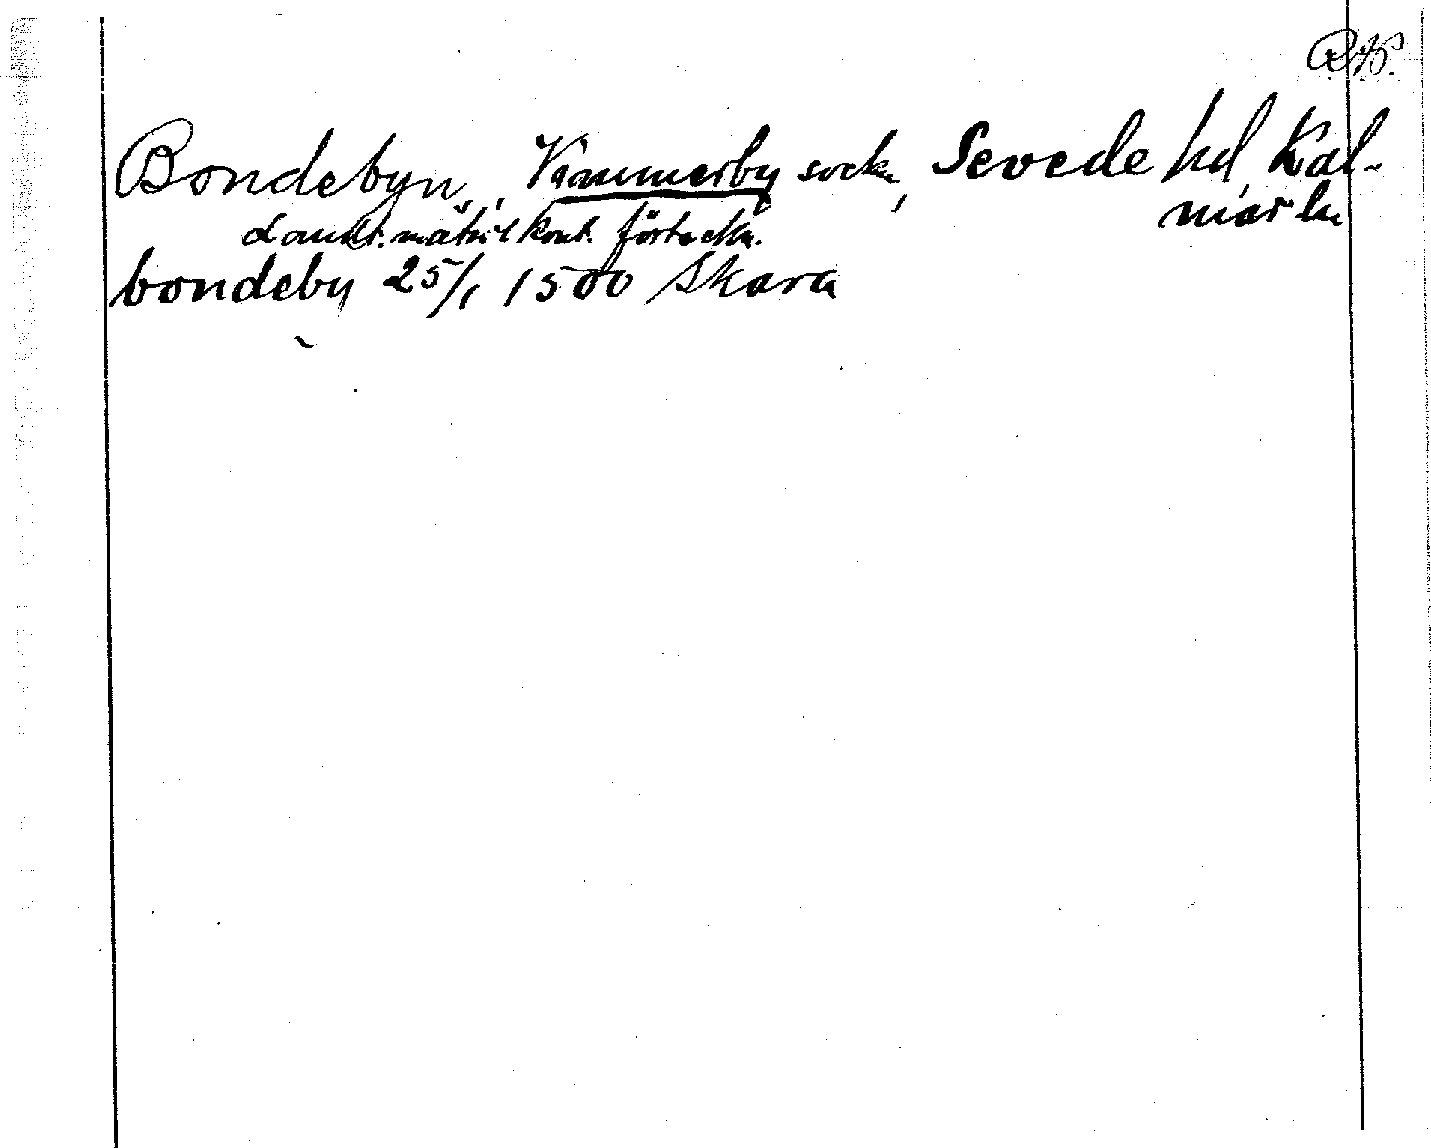 RAP.
Bondebyn, Vimmerby sockn, Sevede hd, Kal-
mar ln
Lantmäterikont. förteckn.
bondeby 25/1 1500 Skara